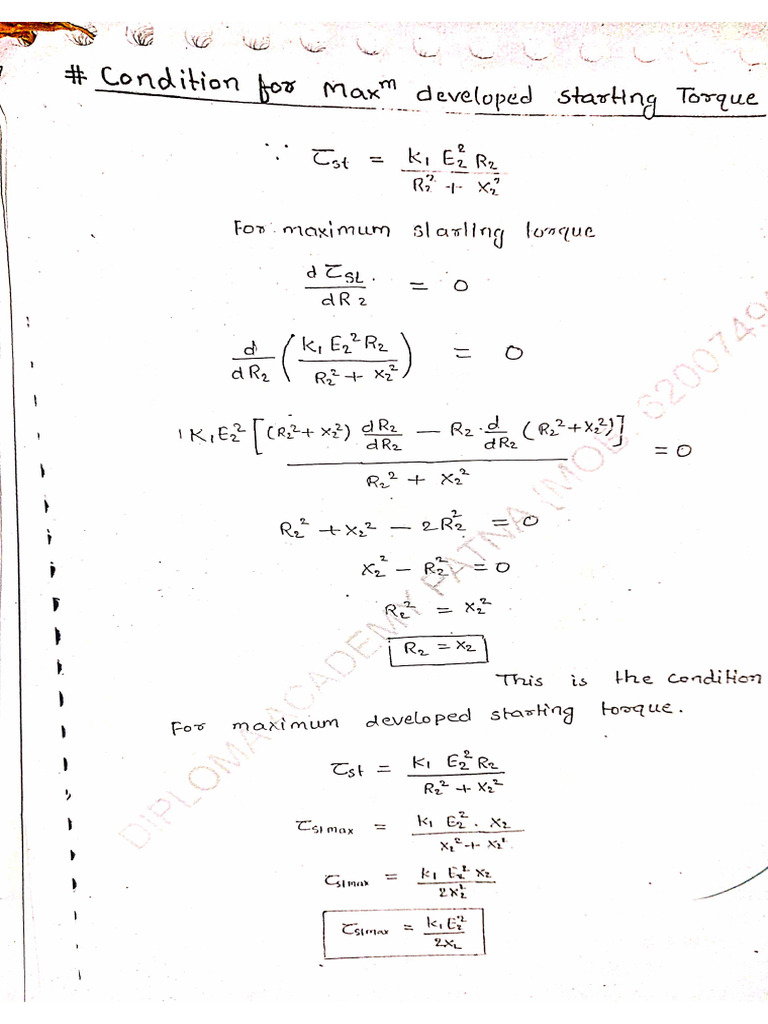 # Condition for Maxᵐ developed starting Torque
∵ τst = K₁ E₂² R₂ / R₂² + X₂²
For maximum starting torque
dτst / dR₂ = 0
d/dR₂ (K₁ E₂² R₂ / R₂² + X₂²) = 0
K₁E₂² [(R₂² + X₂²) dR₂/dR₂ − R₂ · d/dR₂ (R₂² + X₂²)] / R₂² + X₂² = 0
R₂² + X₂² − 2R₂² = 0
X₂² − R₂² = 0
R₂² = X₂²
R₂ = X₂
This is the condition
For maximum developed starting torque.
τst = K₁ E₂² R₂ / R₂² + X₂²
τstmax = K₁ E₂² · X₂ / X₂² + X₂²
τstmax = K₁ E₂² X₂ / 2X₂²
τstmax = K₁E₂² / 2X₂
DIPLOMA ACADEMY PATNA (MOB. 6200749